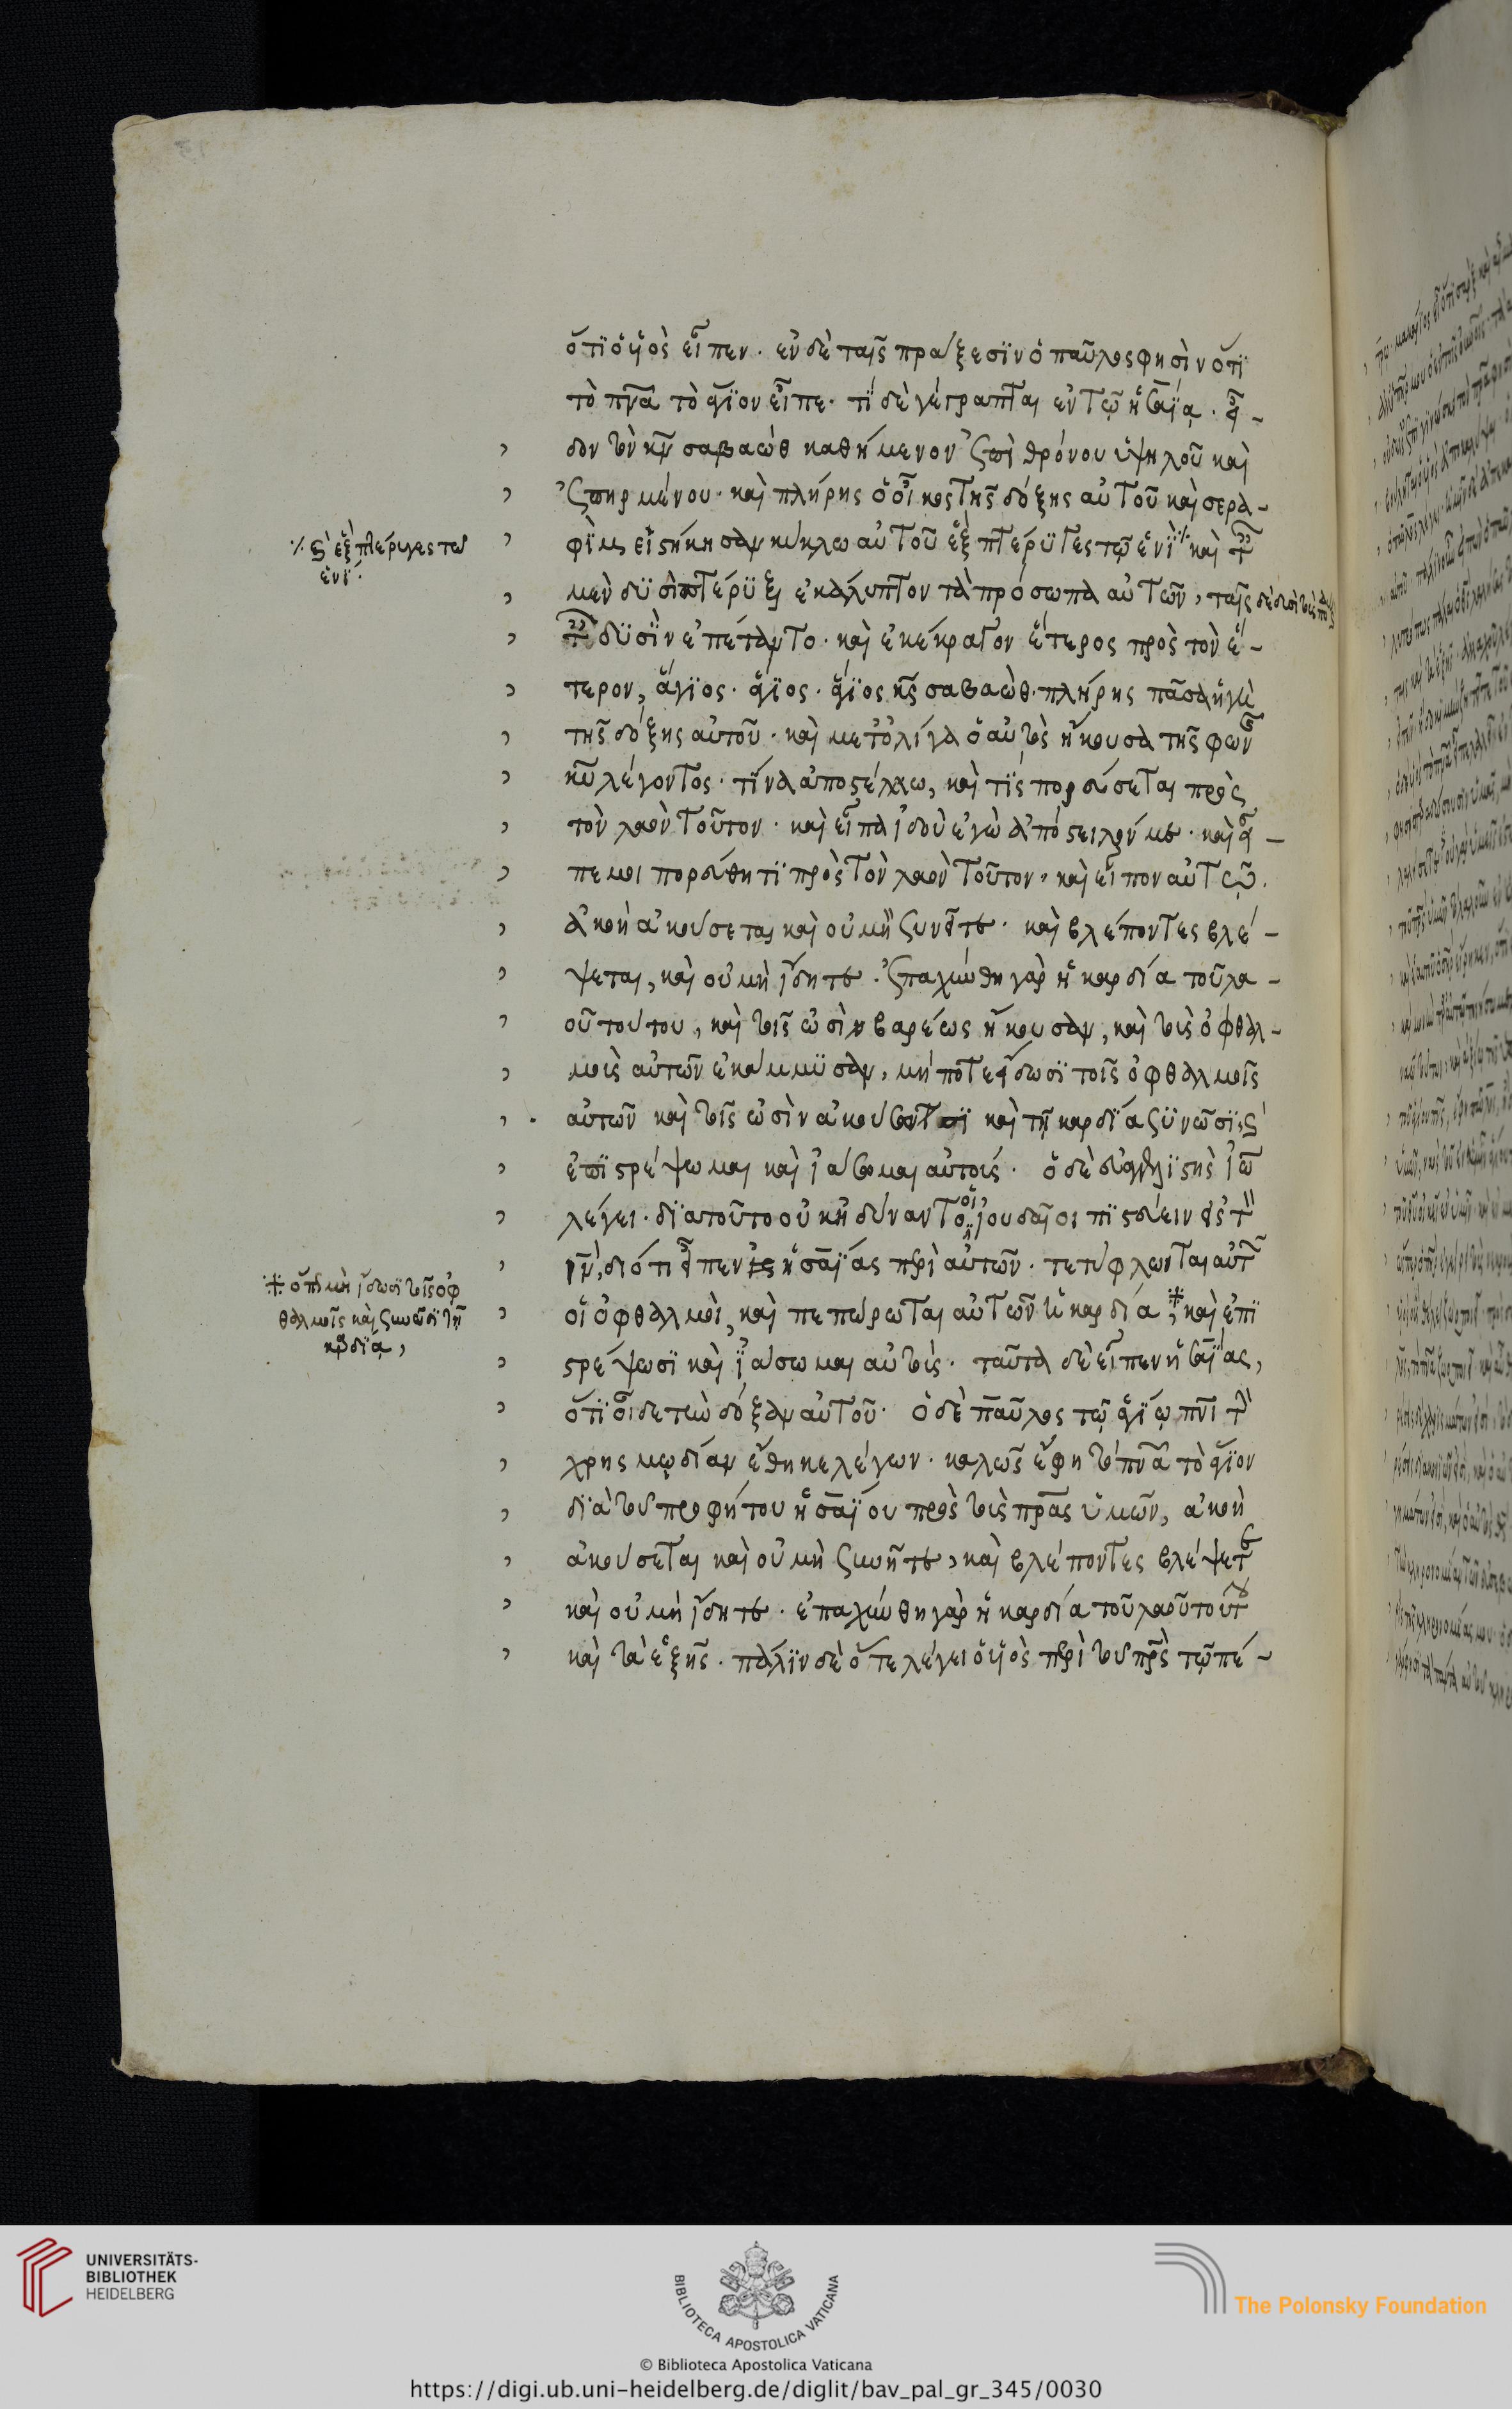 ὅτι ὁ υἱὸς εἶπεν· ἐν δὲ ταῖς πράξεσιν ὁ παῦλος φησὶν ὅτι
τὸ πνα τὸ ἅγιον εἶπε· τί δὲ γέγραπται ἐν τῷ ἡσαΐᾳ· εἶ-
δον τὸν κν σαβαὼθ καθήμενον ἐπὶ θρόνου ὑψηλοῦ καὶ
ἐπηρμένου· καὶ πλήρης ὁ οἶκος τῆς δόξης αὐτοῦ καὶ σερα-
φὶμ εἱστήκησαν κύκλω αὐτοῦ ἓξ πτέρυγες τῷ ἑνὶ ⁒ καὶ τ
⁒ ϛ ἓξ πτέρυγες τω
ἑνί·
μὲν δυσὶ πτέρυξι ἐκάλυπτον τὰ πρόσωπα αὐτῶν, ταῖς δὲ δυσὶ τοὺς
τ δυσὶν ἐπέταντο· καὶ ἐκέκραγον ἕτερος πρὸς τὸν ἕ-
τερον, ἅγιος· ἅγιος· ἅγιος κς σαβαώθ· πλήρης πᾶσα ἡ γῆ
τῆς δόξης αὐτοῦ· καὶ μετ' ὀλίγα ὁ αὐτὸς ἤκουσα τῆς φων
κυ λέγοντος· τίνα ἀποστέλλω, καὶ τίς πορεύσεται πρὸς
τὸν λαὸν τοῦτον· καὶ εἶπα ἰδοὺ ἐγὼ ἀπόστειλόν με· καὶ εἶ-
πε μοι πορεύθητι πρὸς τὸν λαὸν τοῦτον· καὶ εἶπον αὐτῷ.
ἀκοὴ ἀκούσεται καὶ οὐ μὴ συνῆτε· καὶ βλέποντες βλέ-
ψεται, καὶ οὐ μὴ ἴδητε· ἐπαχύνθη γὰρ ἡ καρδία τοῦ λα-
οῦ τούτου, καὶ τοῖς ὠσὶν βαρέως ἤκουσαν, καὶ τοὺς ὀφθαλ-
μοὺς αὐτῶν ἐκάμμυσαν, μήποτε ἴδωσι τοῖς ὀφθαλμοῖς
αὐτῶν καὶ τοῖς ὠσὶν ἀκούσωσι καὶ τῇ καρδία συνῶσι, ϛ
ἐπιστρέψωμαι καὶ ἰάσομαι αὐτούς· ὁ δὲ εὐαγγελιστὴς ἰω
λέγει· διατοῦτο οὐκ ἠδύναντο οἱ ἰουδαῖοι πιστεύειν εἰς τ
ιν, διότι εἶπεν ἡσαΐας περὶ αὐτῶν· τετύφλωνται αὐτ
οἱ ὀφθαλμοὶ, καὶ πεπώρωται αὐτῶν ἡ καρδία ※, καὶ ἐπι
※ ὅπως μὴ ἴδωσι τοῖς ὀφ
θαλμοῖς καὶ συνῶσι τῇ
καρδίᾳ,
στρέψωσι καὶ ἰάσωμαι αὐτούς· ταῦτα δὲ εἶπεν ἡσαΐας,
ὅτι οἶδε τὴν δόξαν αὐτοῦ· ὁ δὲ παῦλος τῷ ἁγίῳ πνι τ
χρησμῳδίαν ἔθηκε λέγων· καλῶς ἔφη τὸ πνα τὸ ἅγιον
διὰ τοῦ προφήτου ἡσαΐου πρὸς τοὺς πρας ὑμῶν, ἀκοὴ
ἀκούσεται καὶ οὐ μὴ συνῆτε, καὶ βλέποντες βλέψετ
καὶ οὐ μὴ ἴδητε· ἐπαχύνθη γὰρ ἡ καρδία τοῦ λαοῦ τούτ
καὶ τὰ ἑξῆς· πάλιν δὲ ὅτε λέγει ὁ υἱὸς περὶ τοῦ πρς τῷ πέ-
UNIVERSITÄTS-
BIBLIOTHEK
HEIDELBERG
BIBLIOTECA APOSTOLICA VATICANA
The Polonsky Foundation
© Biblioteca Apostolica Vaticana
https://digi.ub.uni-heidelberg.de/diglit/bav_pal_gr_345/0030